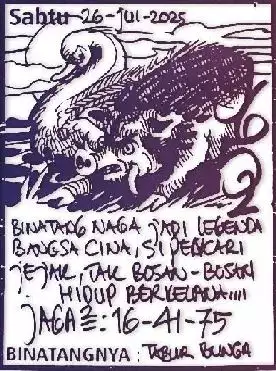 Sabtu 26-JUL-2025
62
BINATANG NAGA JADI LEGENDA
BANGSA CINA, SI PENCARI
JEJAK, TAK BOSAN-BOSAN
HIDUP BERKELANA....
JAGA²: 16-41-75
BINATANGNYA : TABUR BUNGA